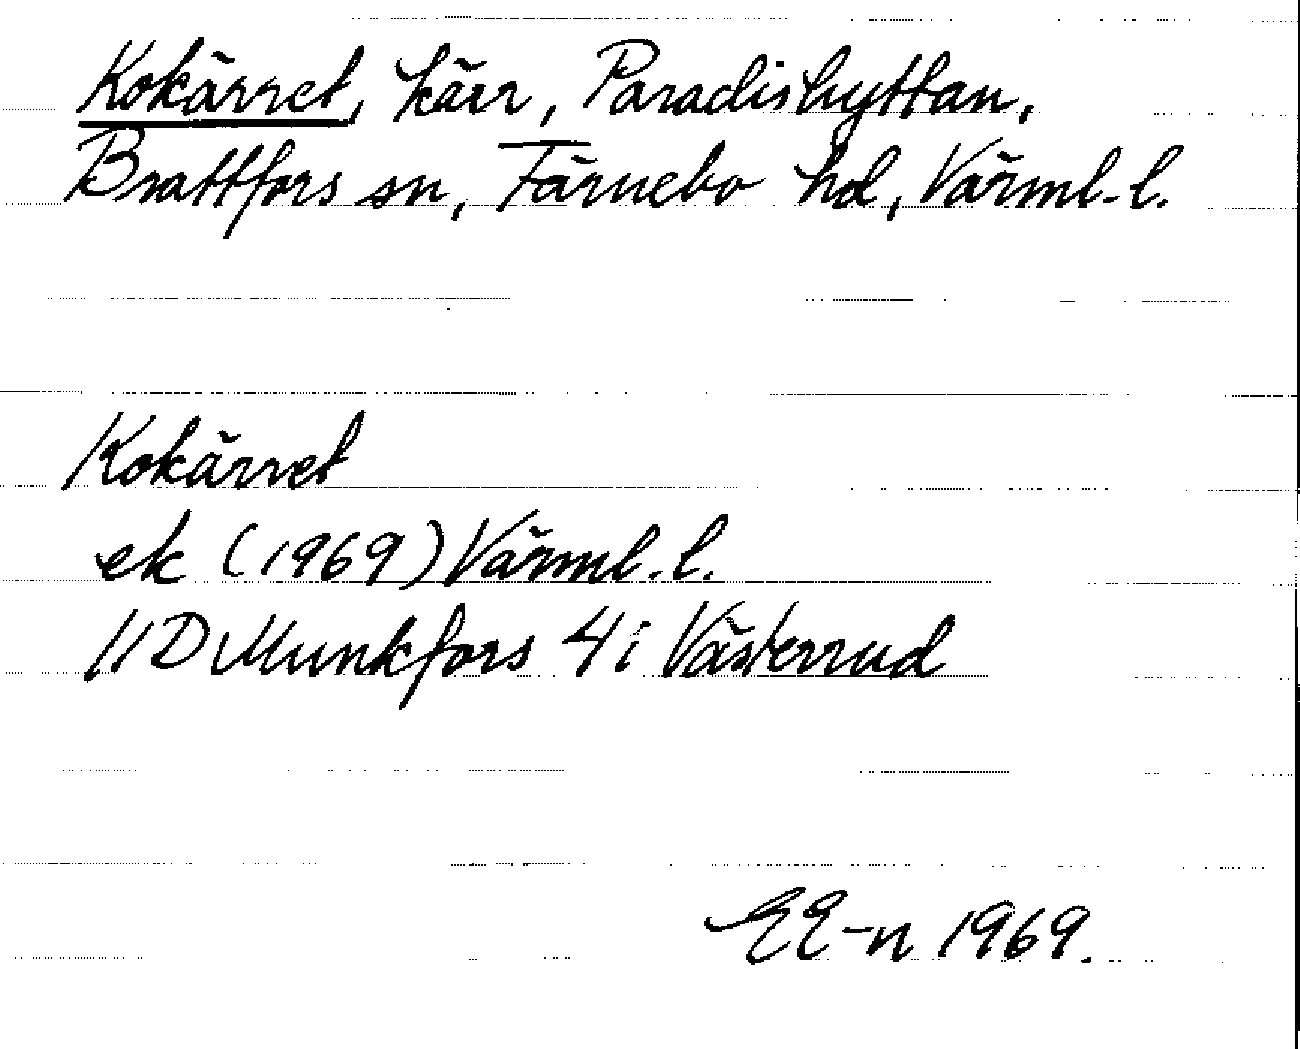 Kokärret, kärr, Paradishyttan,
Brattfors sn, Färnebo hd, Värml. l.
Kokärret
ek (1969) Värml. l.
11D Munkfors 4i Västerrud
EE-n 1969.